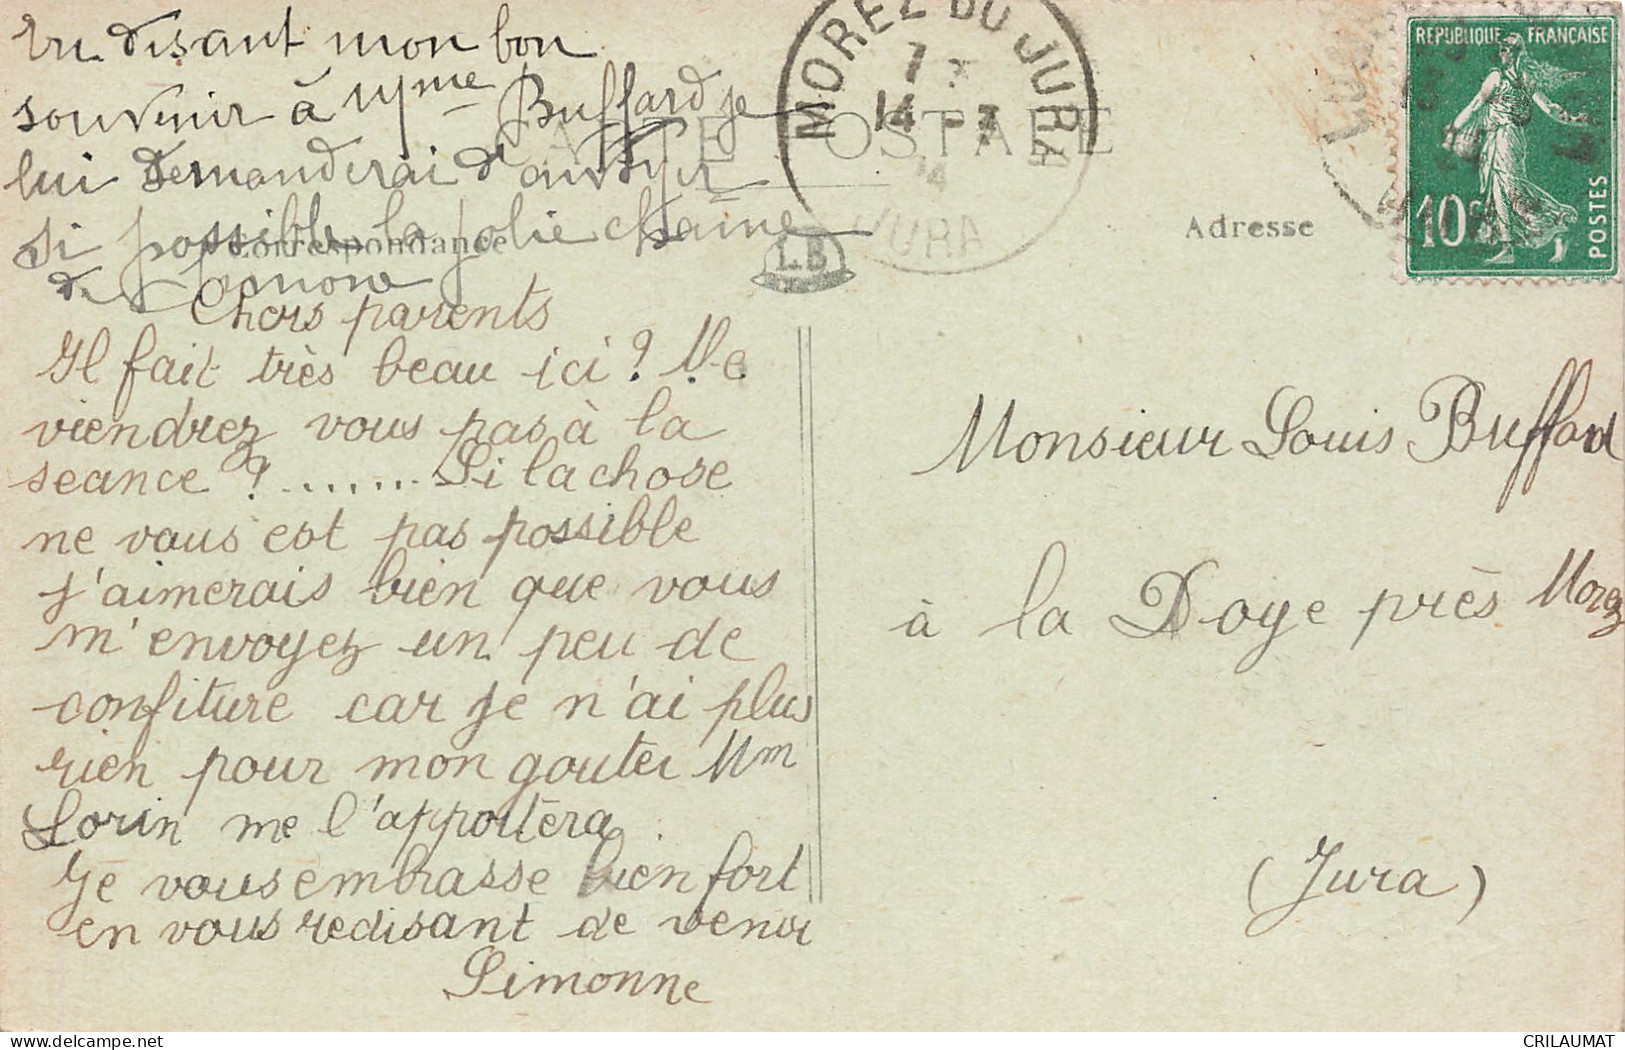 En disant mon bon
souvenir à Mme Buffard je
lui demanderai d'envoyer
si possible la jolie chaîne
de Simone
CARTE POSTALE
Correspondance
Adresse
L.B
MOREZ DU JURA
14 - 7
14
JURA
REPUBLIQUE FRANÇAISE
10c
POSTES
Chers parents
Il fait très beau ici ? Ne
viendrez vous pas à la
seance ? ........ Si la chose
ne vous est pas possible
j'aimerais bien que vous
m'envoyez un peu de
confiture car je n'ai plus
rien pour mon gouter Mm
Lorin me l'apportera
Je vous embrasse bien fort
en vous redisant de venir
Simonne
Monsieur Louis Buffard
à la Doye près Morez
(Jura)
CRILAUMAT